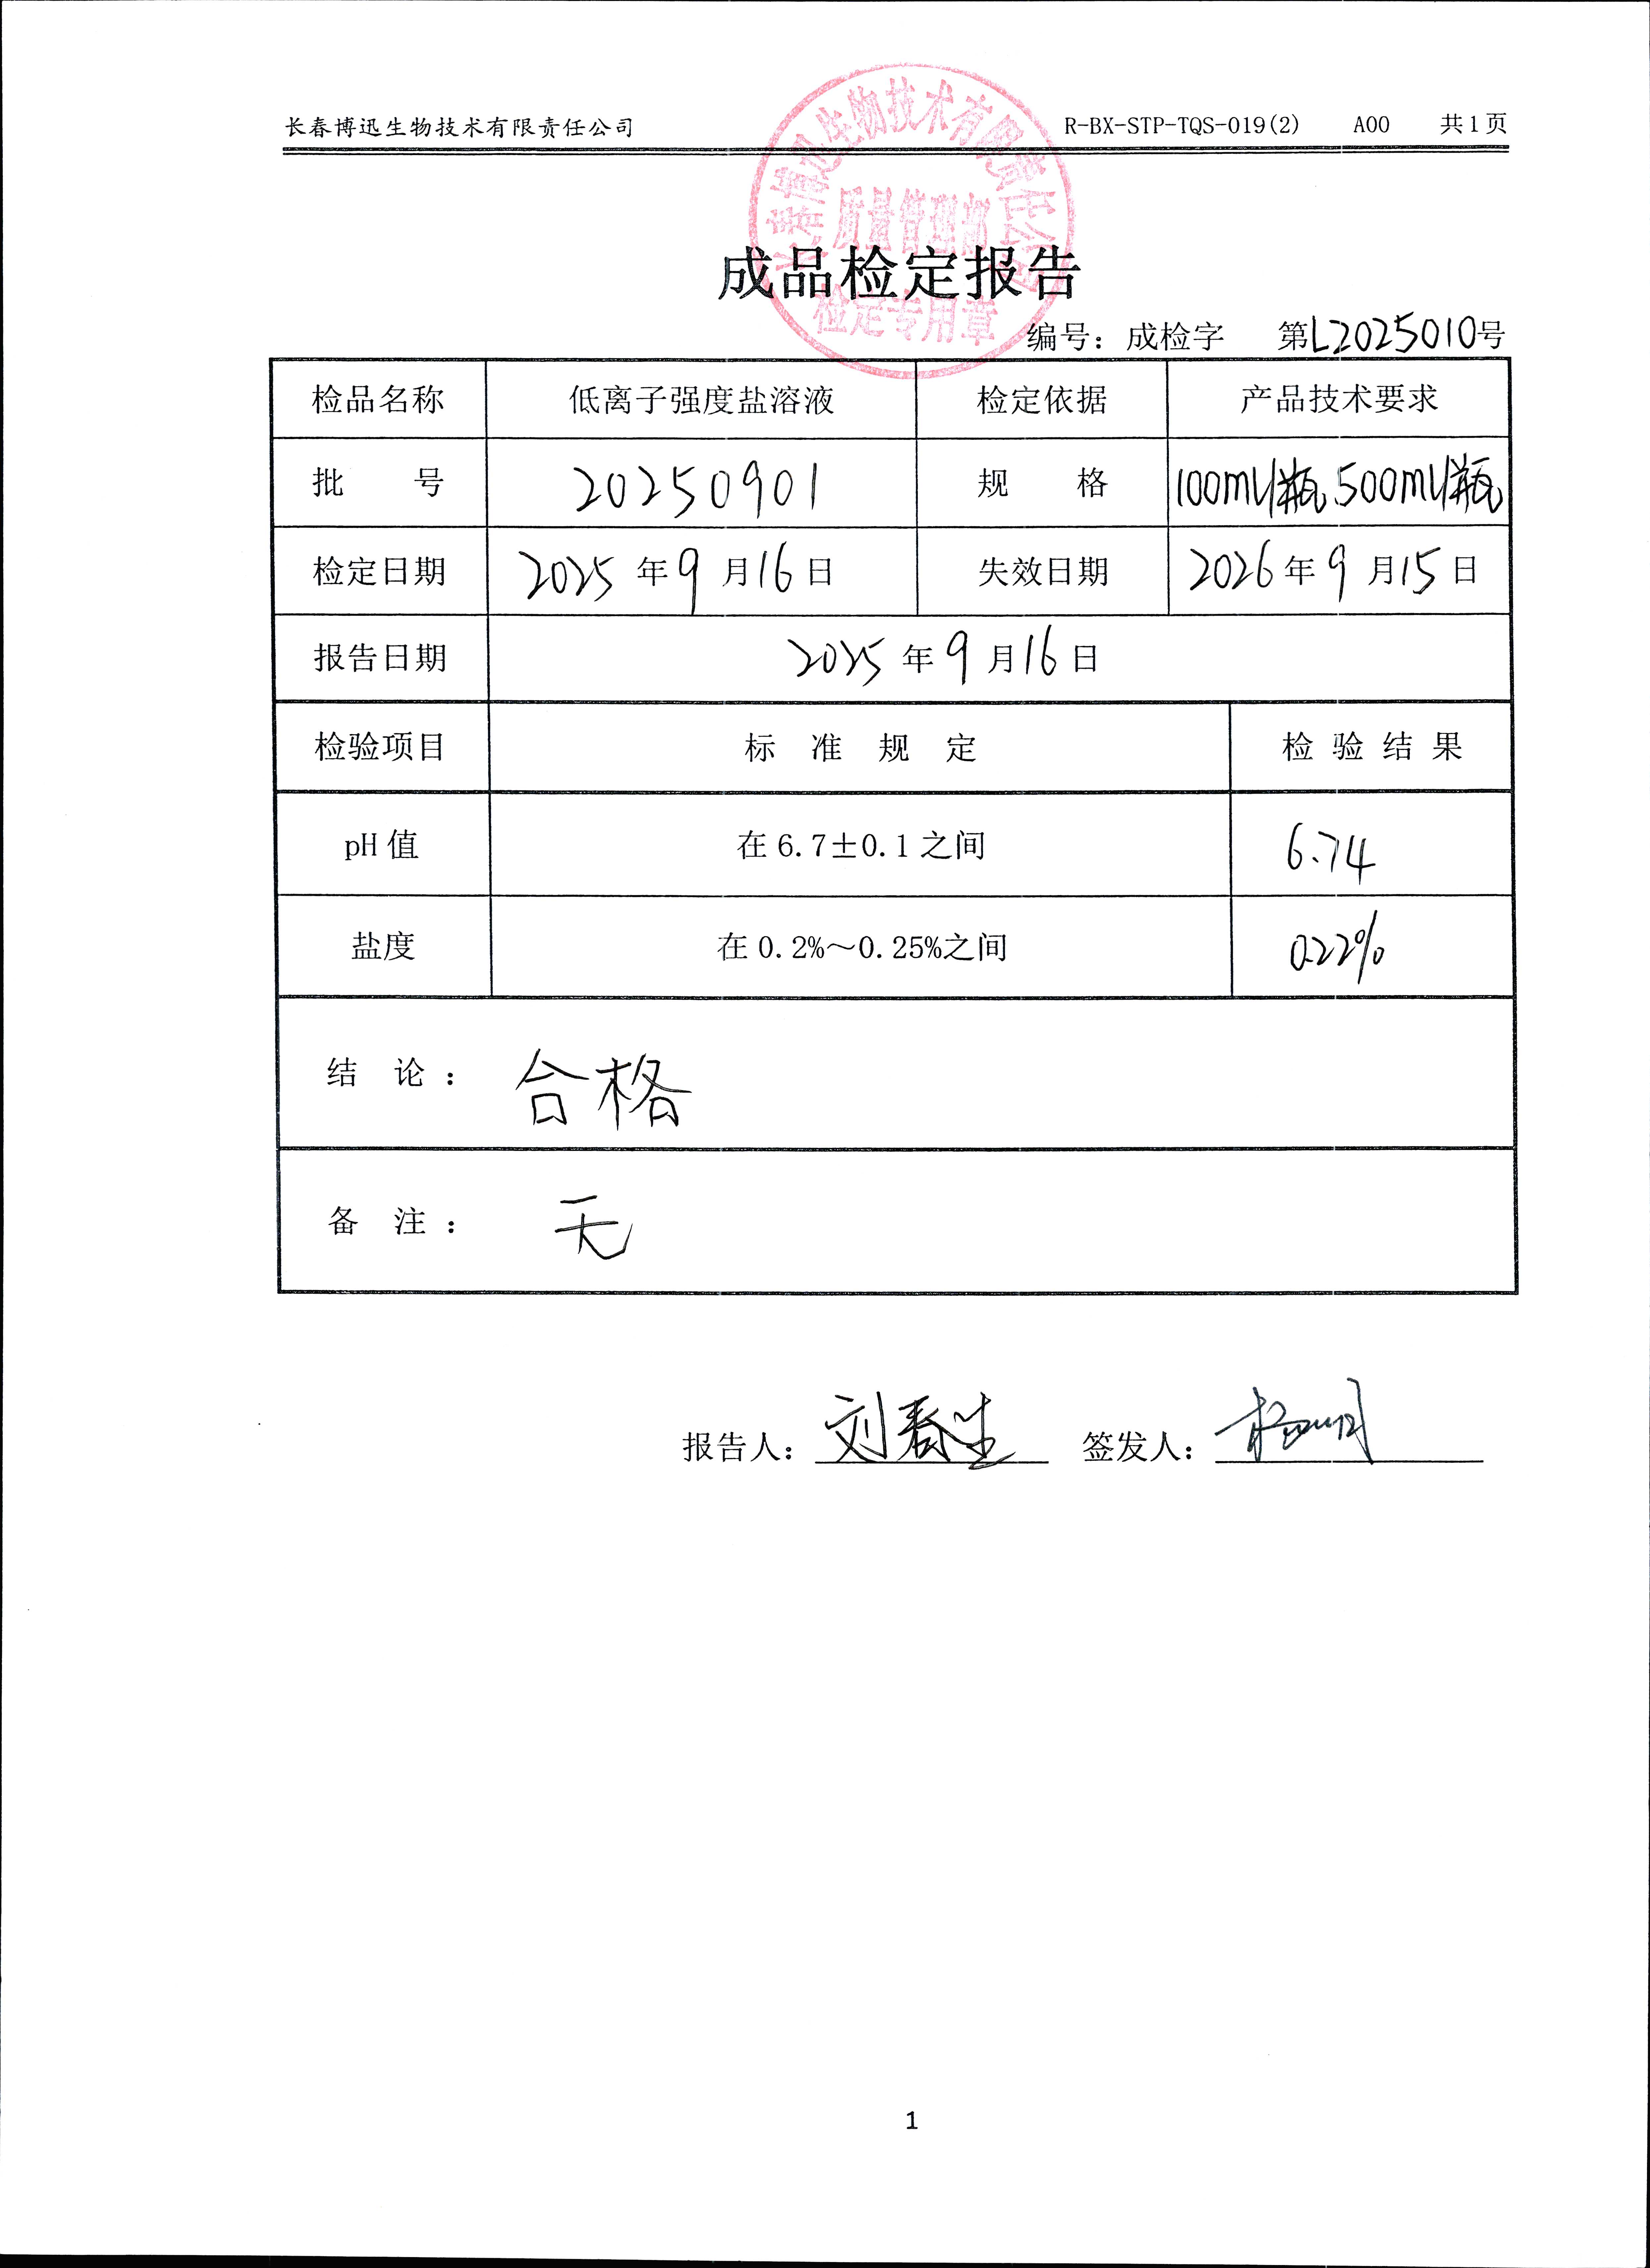 长春博迅生物技术有限责任公司 R-BX-STP-TQS-019(2) A00 共1页
长春博迅生物技术有限责任公司
质量管理部
检定专用章
成品检定报告
编号：成检字 第L2025010号
检品名称 低离子强度盐溶液 检定依据 产品技术要求
批 号 20250901 规 格 100ml/瓶、500ml/瓶
检定日期 2025年9月16日 失效日期 2026年9月15日
报告日期 2025年9月16日
检验项目 标 准 规 定 检 验 结 果
pH值 在6.7±0.1之间 6.74
盐度 在0.2%～0.25%之间 0.22%
结 论： 合格
备 注： 无
报告人：刘春生 签发人：
1